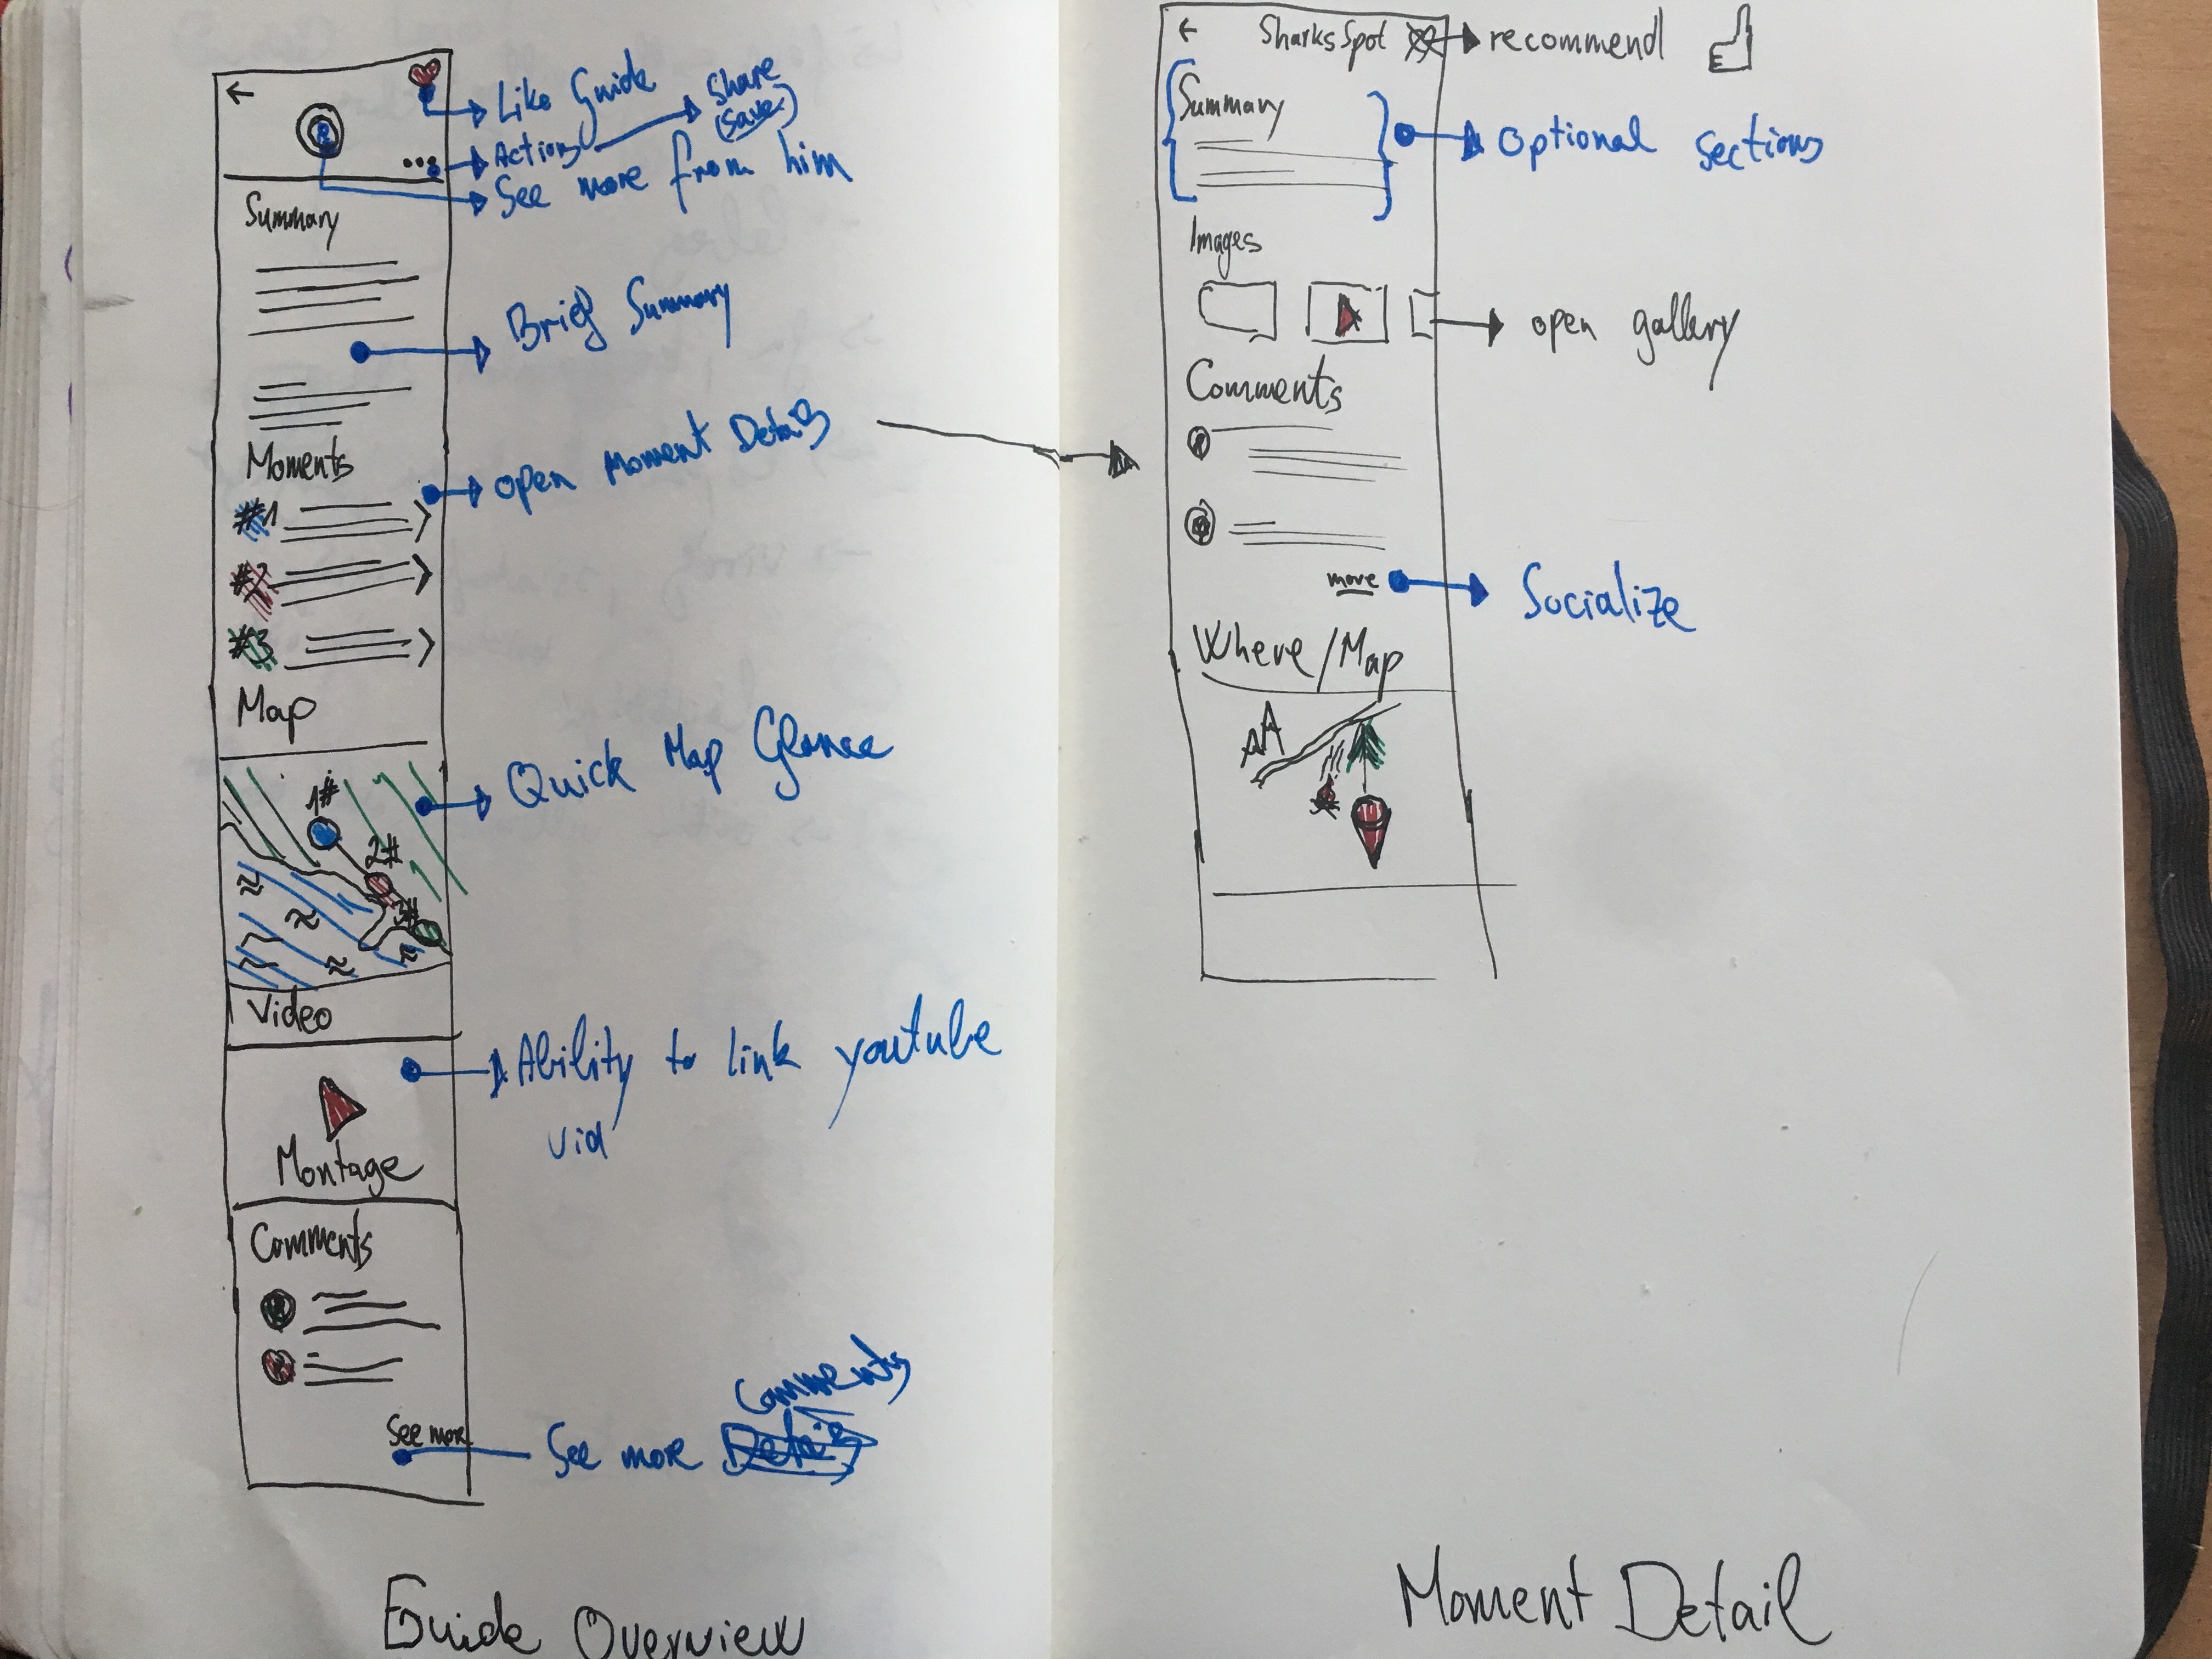 Like Guide
Actions
Share
(Save)
See more from him
Summary
Brief Summary
Moments
open Moment Details
#1
#2
#3
Map
Quick Map Glance
1#
2#
3#
Video
Ability to link youtube
vid
Montage
Comments
See more
See more Comments
Guide Overview
Sharks Spot
recommend
Summary
Optional Sections
Images
open gallery
Comments
more
Socialize
Where/Map
Moment Detail